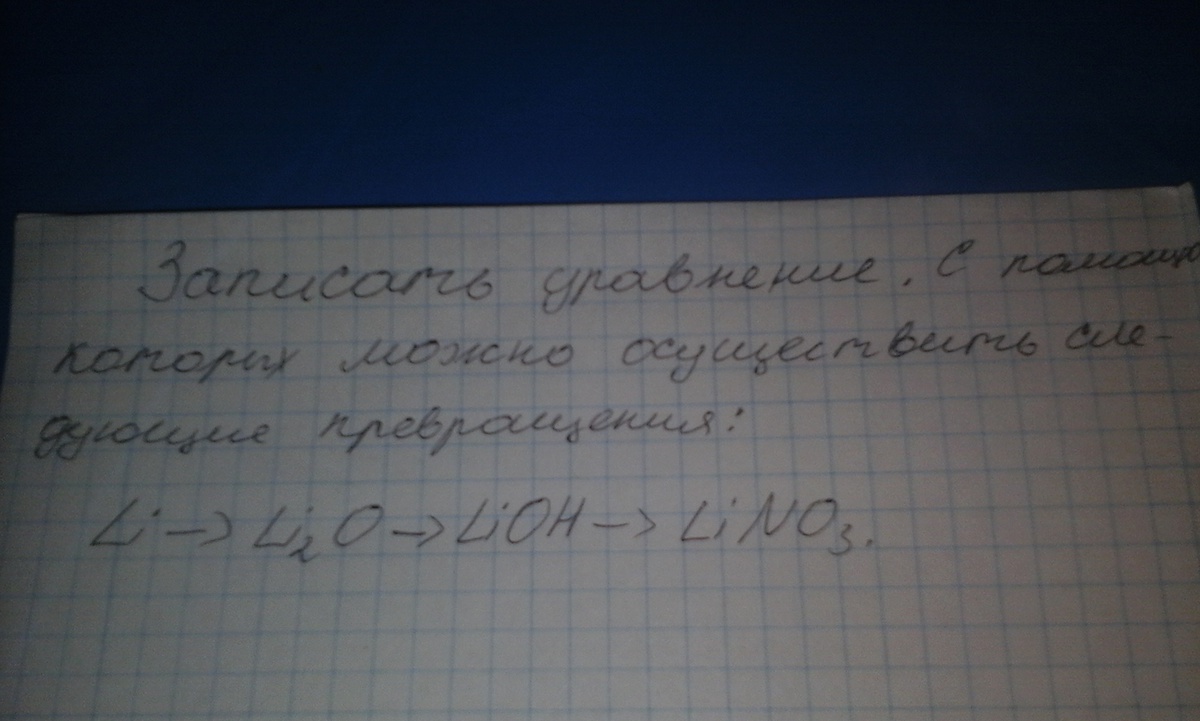 Записать уравнение. С помощью
которых можно осуществить сле-
дующие превращения:
Li → Li₂O → LiOH → LiNO₃.